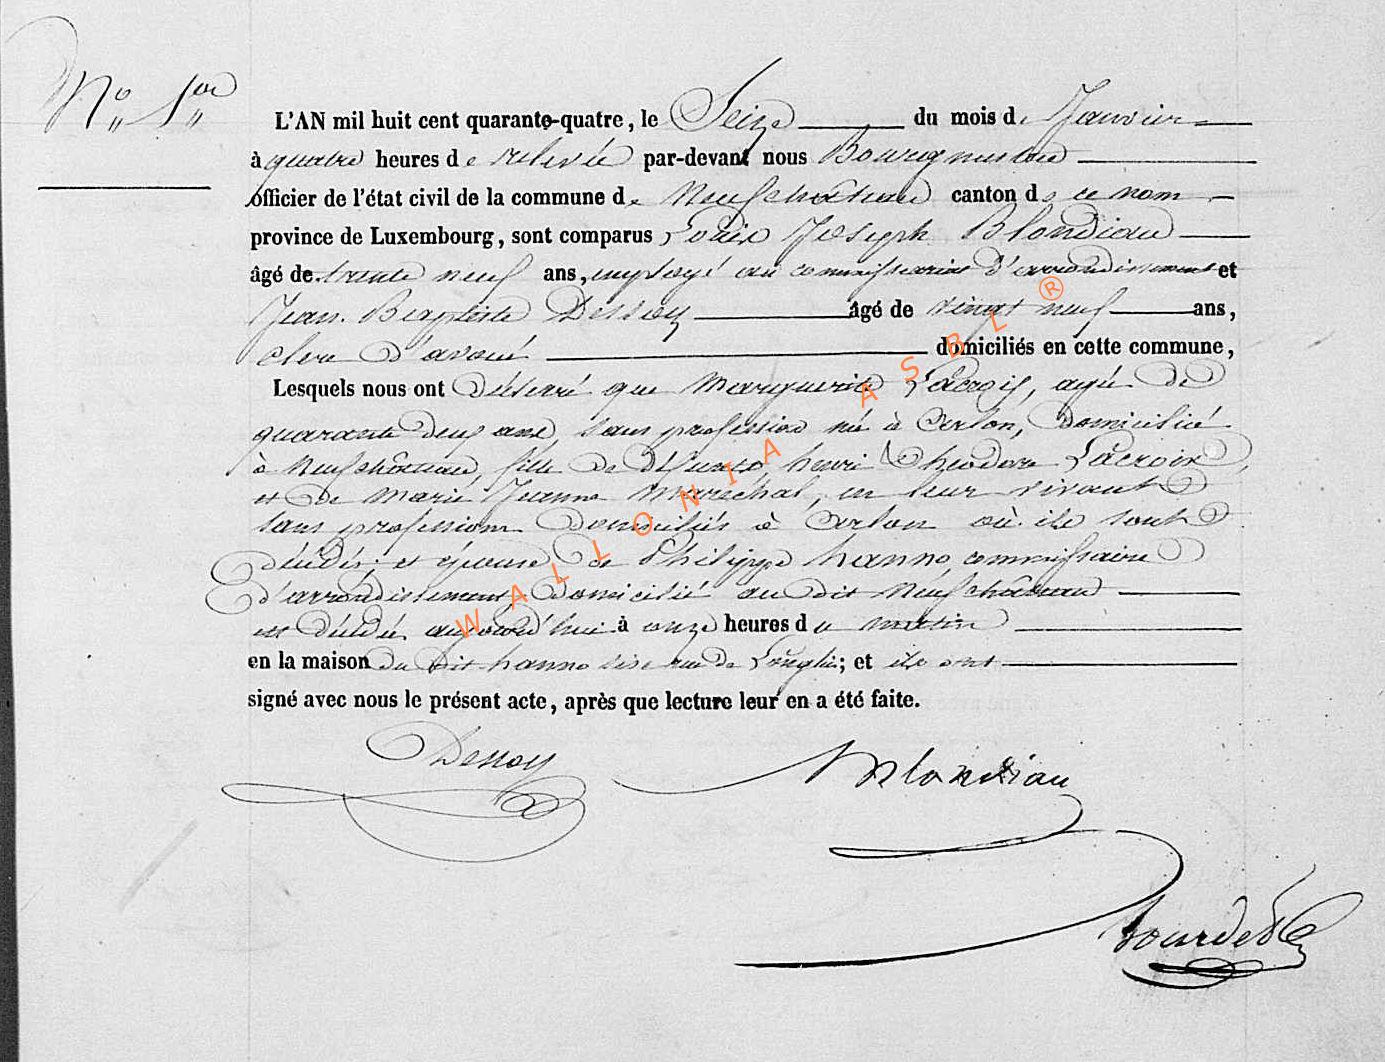 N° 1er
L'AN mil huit cent quarante-quatre, le Seize du mois de Janvier
à quatre heures de relevée par-devant nous
officier de l'état civil de la commune de Neufchâteau canton de ce nom
province de Luxembourg, sont comparus Louis Joseph Blondiau
âgé de trente neuf ans, employé au commissariat d'arrondissement et
Jean Baptiste Dessoy âgé de vingt neuf ans,
clerc d'avoué domiciliés en cette commune,
Lesquels nous ont déclaré que Marguerite Lacroix, agée de
quarante deux ans, sans profession née à Arlon, domiciliée
à Neufchâteau, fille de défunts henri Theodore Lacroix,
et de Marie Jeanne Maréchal, en leur vivant
sans profession domiciliés à Arlon où ils sont
décédés, et épouse de Philippe hanno commissaire
d'arrondissement, domicilié au dit Neufchâteau
est décédée aujourd'hui à onze heures du matin
en la maison du dit hanno sise rue de Longlier; et ils ont
signé avec nous le présent acte, après que lecture leur en a été faite.
Dessoy Blondiau
WALLONIA ASBL ®